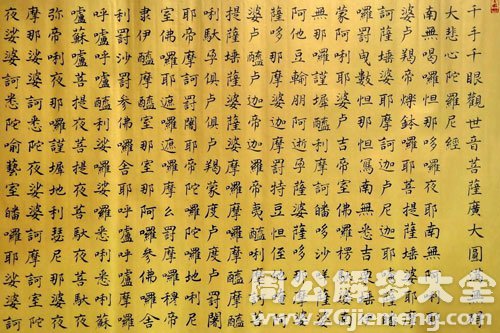 千手千眼觀世音菩薩廣大圓
大悲心陀羅尼經
南無喝囉怛那哆囉夜耶南無阿
婆盧羯帝爍鉢囉耶菩提薩埵婆
摩訶薩埵婆耶摩訶迦盧尼迦耶
囉罰曳數怛那怛寫南無悉吉
蒙阿唎耶婆盧吉帝室佛囉楞
哆沙咩
阿他豆輸朋阿逝孕薩婆薩哆那摩婆
薩哆那摩婆伽摩罰特豆怛姪
婆盧醯盧迦帝迦羅帝夷醯唎摩訶
提薩埵薩婆薩婆摩囉摩囉摩醯摩醯
唎馱孕俱盧俱盧羯蒙度盧度盧罰闍
耶帝摩訶罰闍耶帝陀囉陀囉地唎尼
室佛囉耶遮囉遮囉摩么罰摩囉
隸伊醯伊醯室那室那阿囉參佛囉舍
利罰沙罰參佛囉舍耶呼嚧呼嚧摩囉
呼嚧呼嚧醯利娑囉娑囉悉唎悉唎蘇
嚧蘇嚧菩提夜菩提夜菩馱夜菩馱夜
彌帝唎夜那囉謹墀地利瑟尼那婆夜
摩那娑婆訶悉陀夜娑婆訶摩訶悉陀
夜娑婆訶悉陀喻藝室皤囉耶娑婆訶
周公解夢大全
www.ZGjiemeng.com